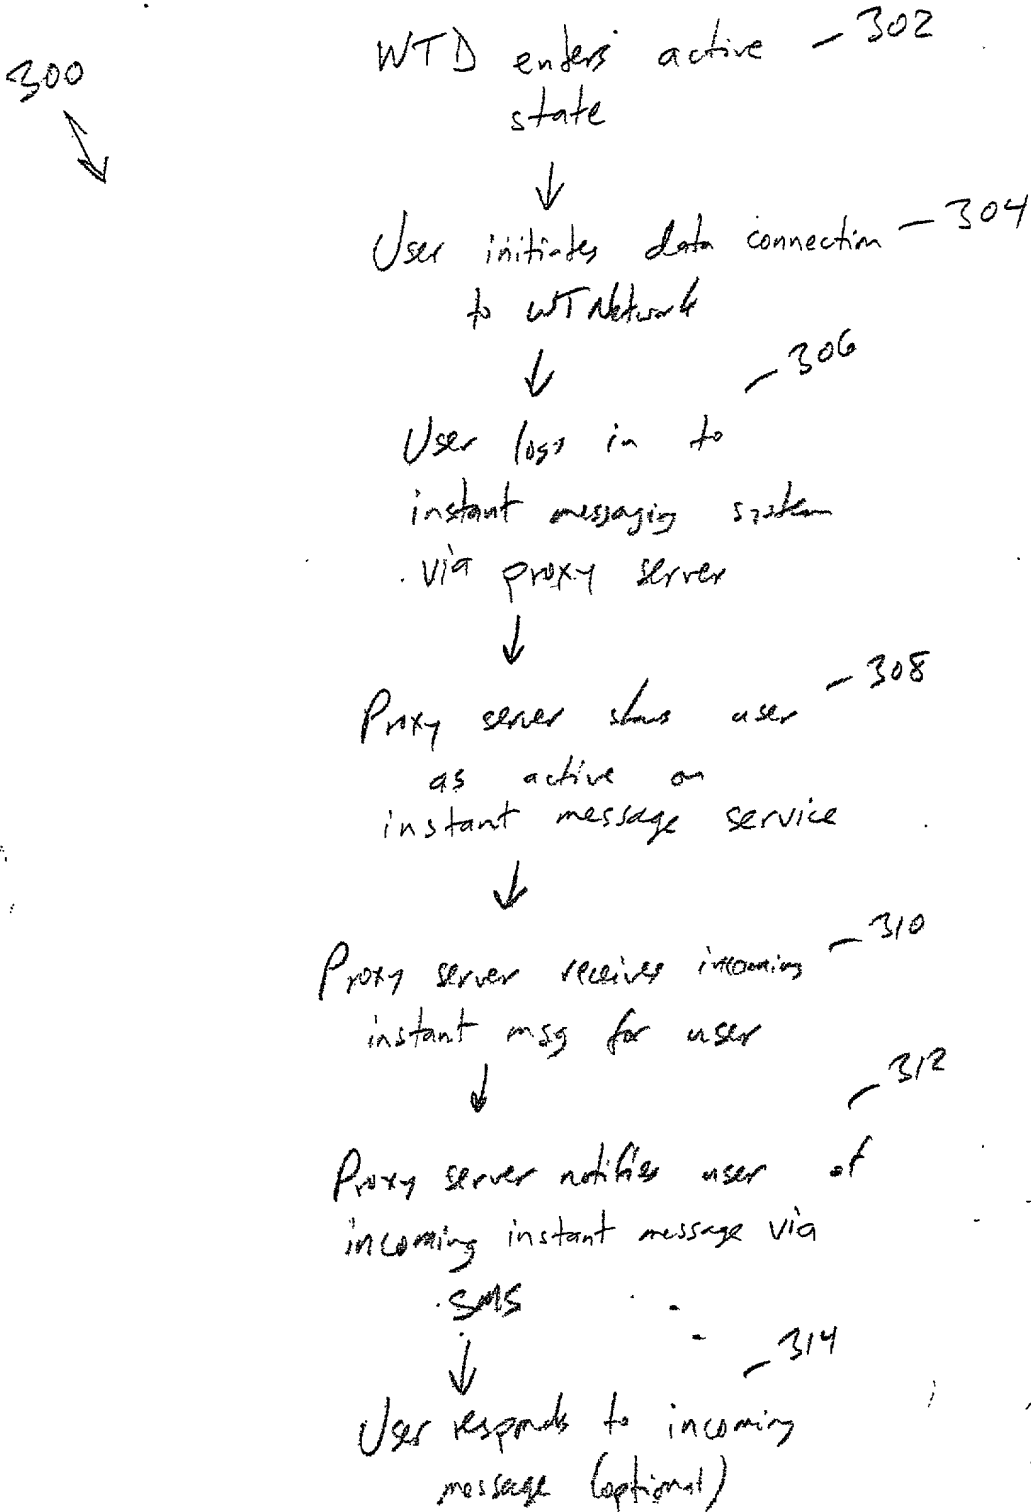 300
WTD enters active - 302
state
User initiates data connection - 304
to WT Network
306
User logs in to
instant messaging system
via proxy server
Proxy server shows user - 308
as active on
instant message service
Proxy server receives incoming - 310
instant msg for user
312
Proxy server notifies user of
incoming instant message via
SMS
314
User responds to incoming
message (optional)